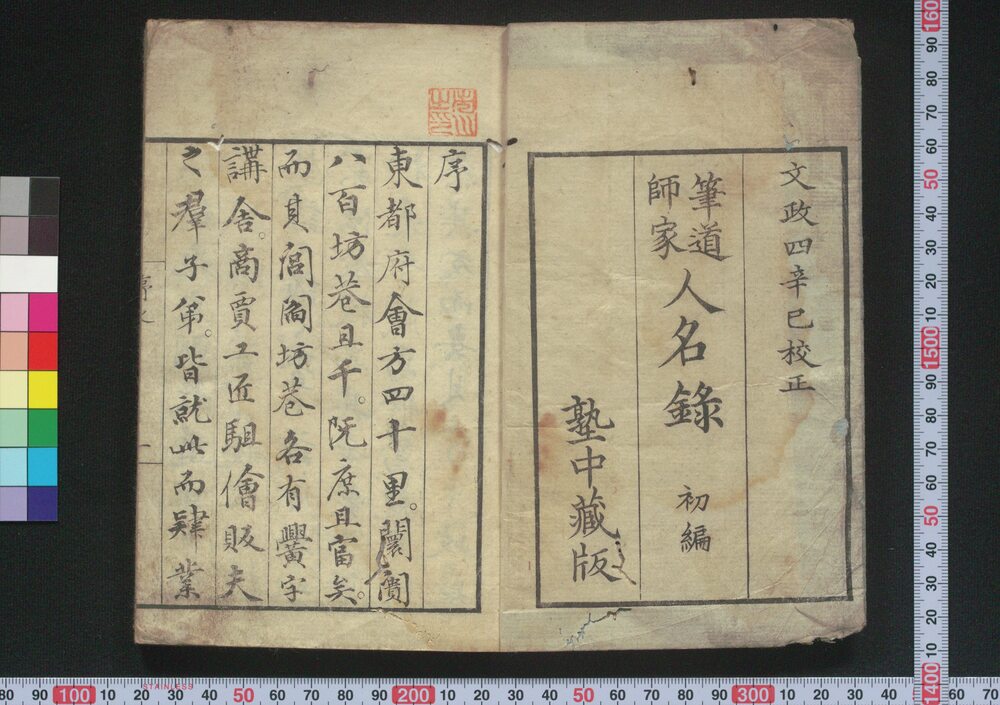 文政四辛巳校正
筆道
師家
人名錄
初編
塾中藏版
序
東都府會方四十里。闤闠
八百坊巷且千。既庶且富矣。
而其閭閻坊巷各有黌宇
講舍。商賈工匠駔儈販夫
之羣子弟。皆就此而肄業